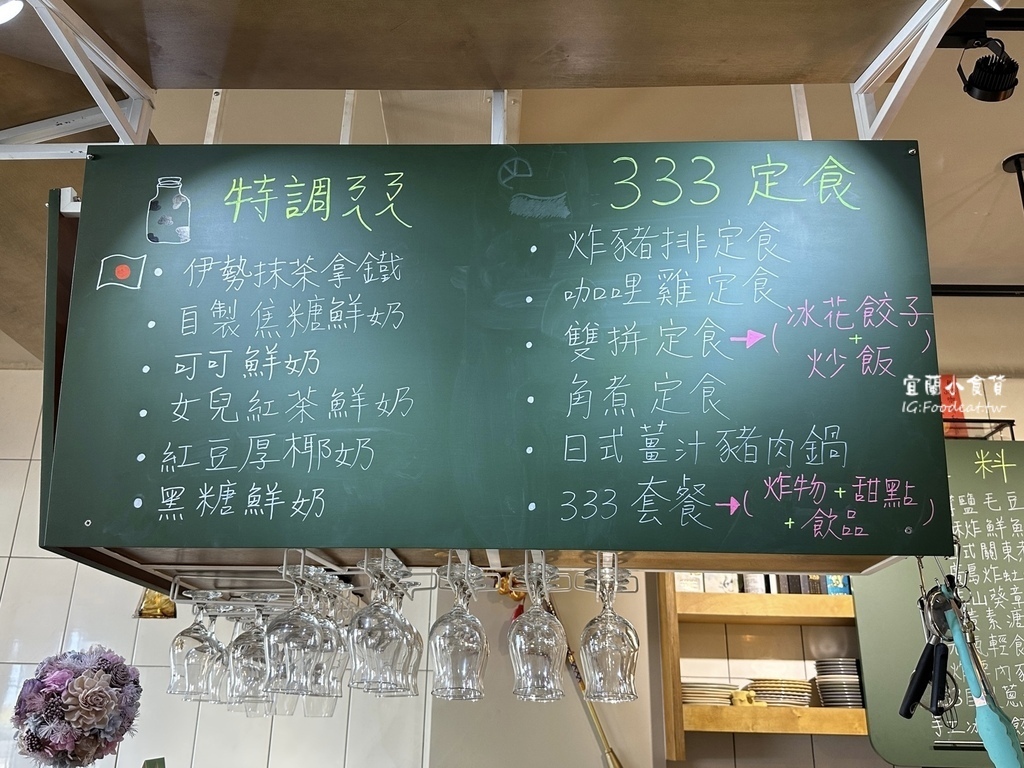 特調ㄋㄋ
伊勢抹茶拿鐵
自製焦糖鮮奶
可可鮮奶
女兒紅茶鮮奶
紅豆厚椰奶
黑糖鮮奶
333 定食
炸豬排定食
咖哩雞定食
雙拼定食→(冰花餃子
+
炒飯)
角煮定食
日式薑汁豬肉鍋
333 套餐→(炸物+甜點
+飲品)
宜蘭小食貨
IG:Foodcat.tw
料
鹽毛豆
炸鮮魚
式關東煮
炸虹
山葵章
素
輕食
肉
手工冰